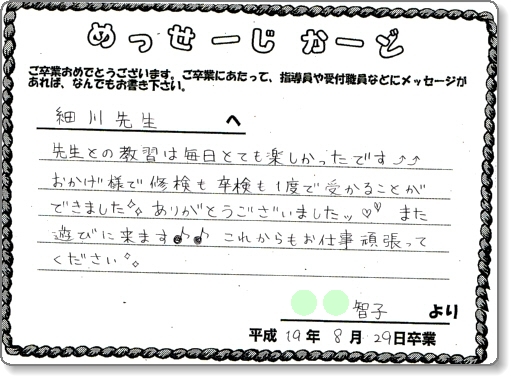 めっせーじ かーど
ご卒業おめでとうございます。ご卒業にあたって、指導員や受付職員などにメッセージが
あれば、なんでもお書き下さい。
細川先生 へ
先生との教習は毎日とても楽しかったです⤴⤴
おかげ様で修検も卒検も1度で受かることが
できました✧ ありがとうございましたッ♡♡ また
遊びに来ます♪♪ これからもお仕事頑張って
ください✧
智子 より
平成 19年 8月 29日卒業